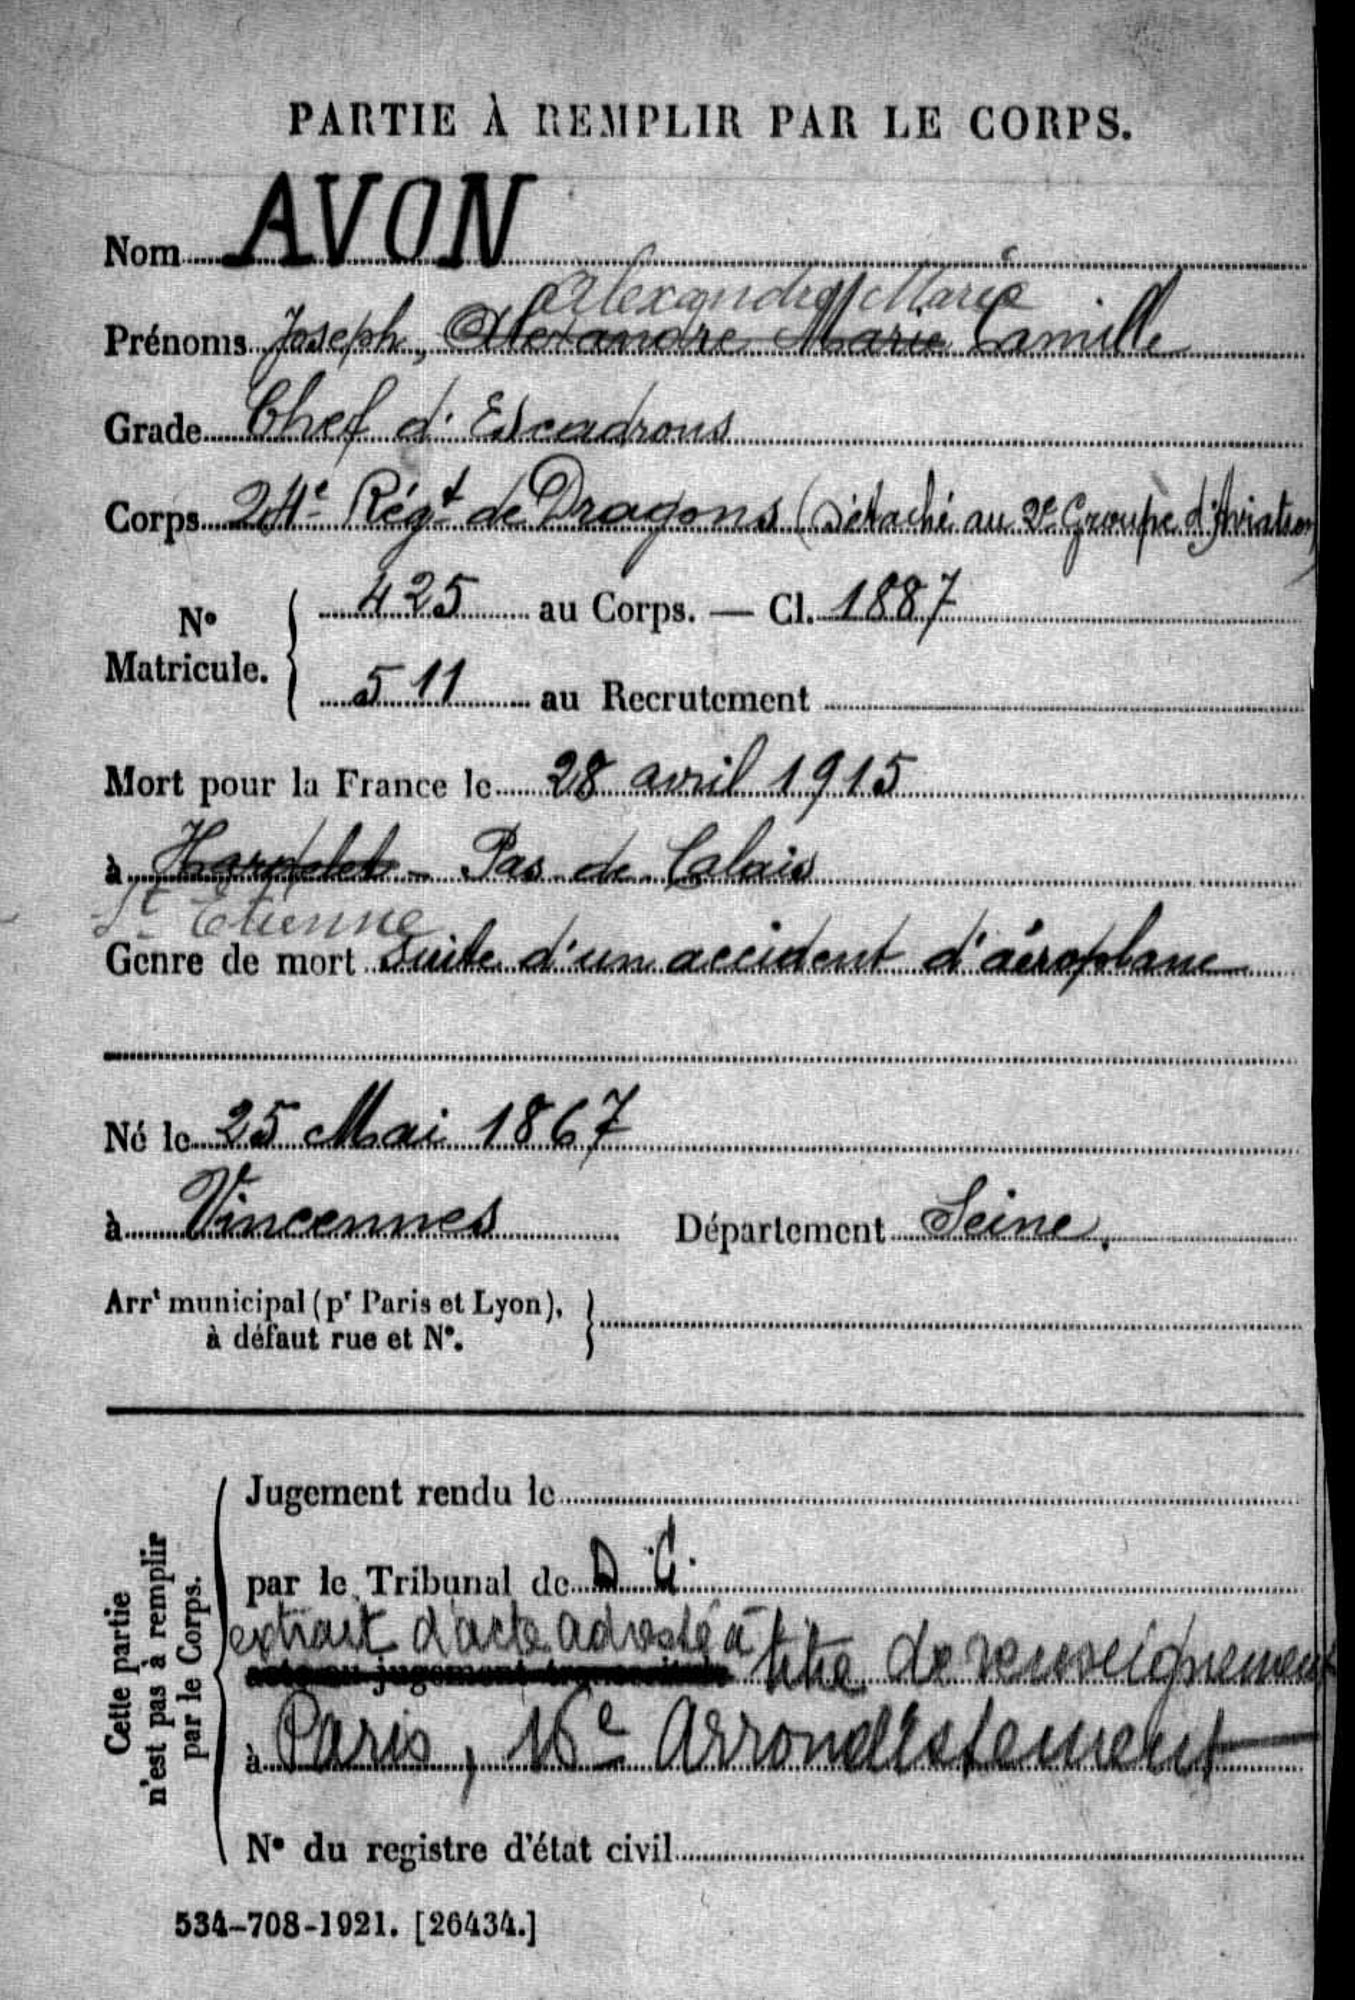 PARTIE À REMPLIR PAR LE CORPS.
Nom AVON
Alexandre Marie
Prénoms Joseph, Alexandre Marie Camille
Grade Chef d'Escadrons
Corps 24e Régt de Dragons (Détaché au 2e Groupe d'Aviation)
No Matricule. { 425 au Corps. — Cl. 1887
511 au Recrutement
Mort pour la France le 28 avril 1915
à Hardelot - Pas de Calais
St Etienne
Genre de mort Suite d'un accident d'aéroplane
Né le 25 Mai 1867
à Vincennes Département Seine.
Arrt municipal (pr Paris et Lyon), }
à défaut rue et No.
Cette partie
n'est pas à remplir
par le Corps.
Jugement rendu le
par le Tribunal de D.C.
extrait d'acte adressé à titre de renseignement
acte ou jugement transcrit le
à Paris, 16e Arrondissement
No du registre d'état civil
534-708-1921. [26434.]